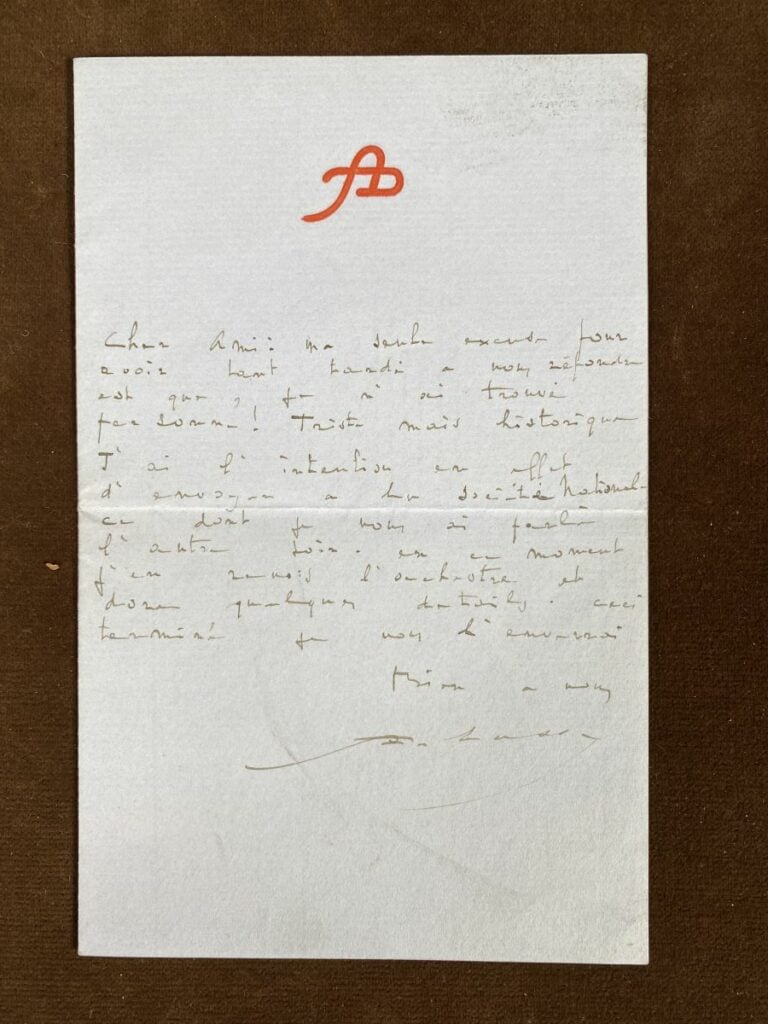 AD
Cher Ami: ma seule excuse pour
avoir tant tardé a vous répondre
est que, je n'ai trouvé
personne! Triste mais historique
J'ai l'intention en effet
d'envoyer a la Société National
ce dont je vous ai parlé
l'autre soir. en ce moment
j'en revois l'orchestre et
dore quelques details. ceci
terminé je vous l'enverrai
Bien a vous